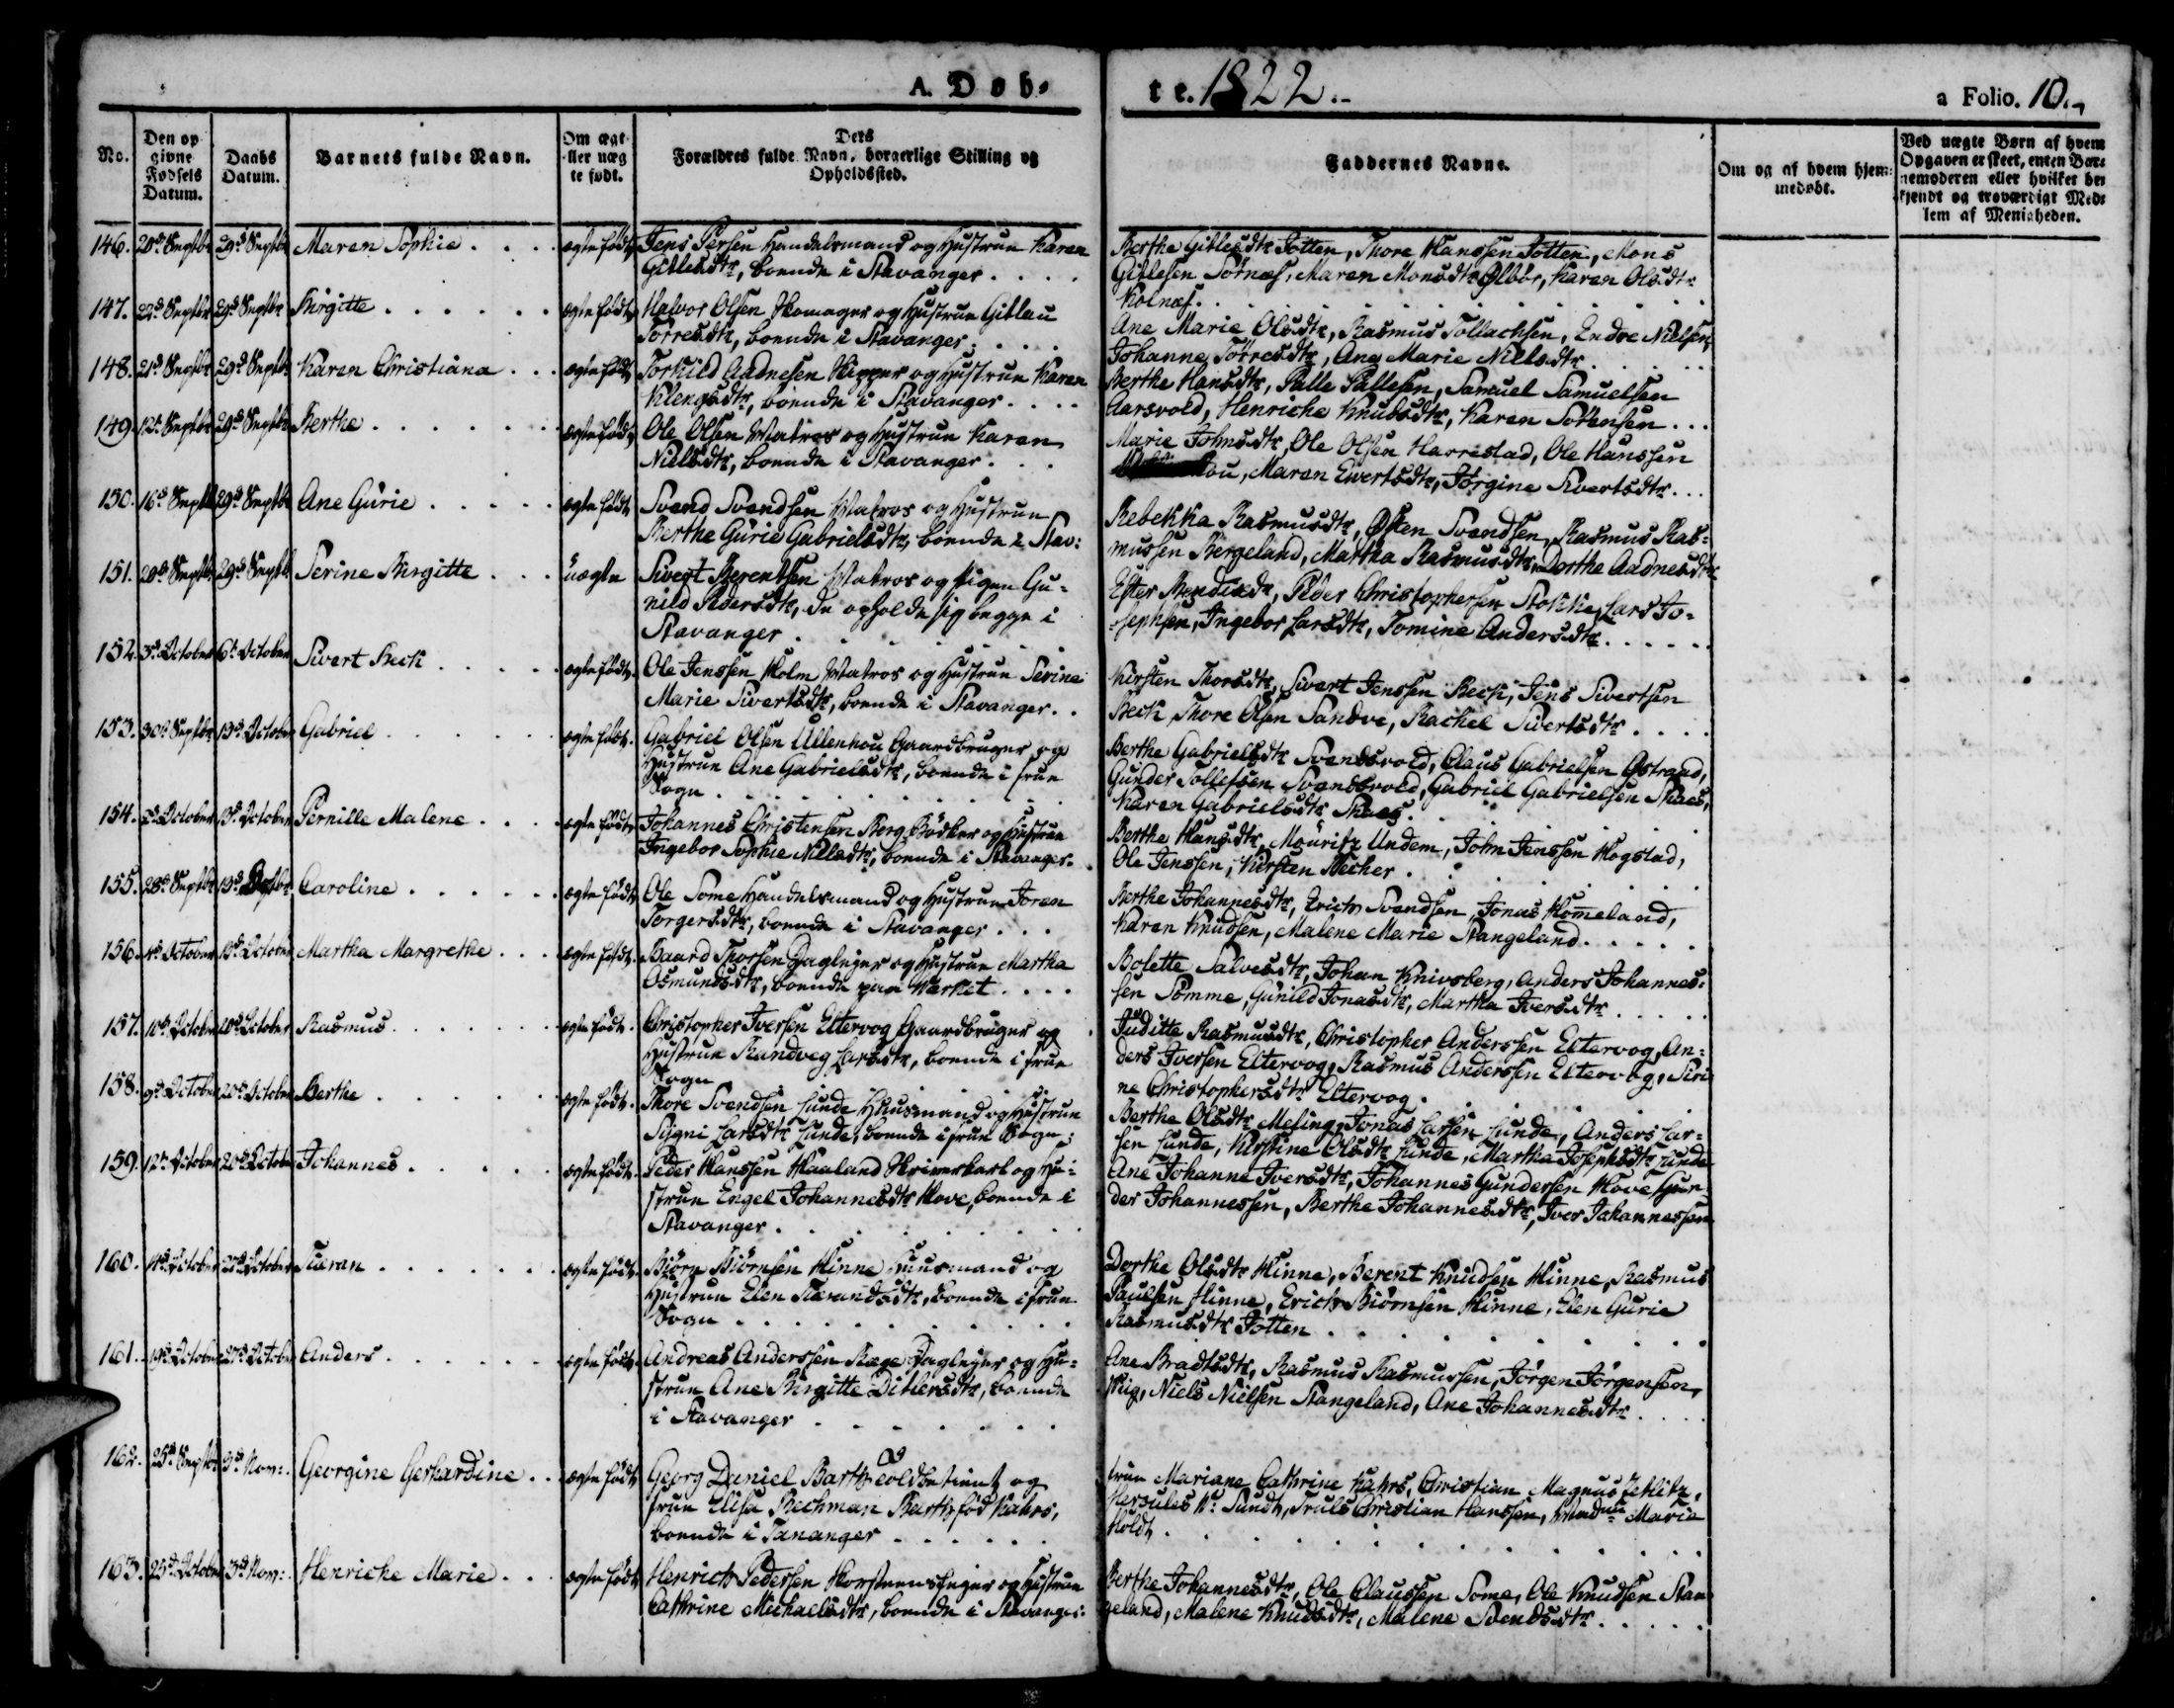 A. Døb-
te. 1822.-
a Folio. 10.
No.
Den op
givne
Fødsels
Datum.
Daabs
Datum.
Barnets fulde Navn.
Om ægte
eller uæg
te født.
Dets
Forældres fulde Navn, borgerlige Stilling og
Opholdssted.
Faddernes Navne.
Om og af hvem hjem-
medøbt.
Ved uægte Børn af hvem
Opgaven er skeet, enten Bar-
nemoderen eller hvilket be-
kjendt og troværdigt Med-
lem af Menigheden.
146. 20de Septbr 29de Septbr Maren Sophie . . . . ægte født Jens Persen Handelsmand og Hustrue Karen
Gitlesdtr, boende i Stavanger . . . .
Berthe Gitlesdtr Totten, Thore Hanssen Totten, Mons
Gitlesen Sørnæs, Maren Monsdtr Ølbør, Karen Olsdtr
Kolnæs.
147. 22de Septbr 29de Septbr Birgitte . . . . . . ægte født Halvor Olsen Skomager og Hustrue Gitlau
Torresdtr, boende i Stavanger . . . .
Ane Marie Olsdtr, Rasmus Tollachsen, Endre Nielsen,
Johanne Torresdtr, Ane Marie Nillsdtr
148. 21de Septbr 29de Septbr Karen Christiana . . . ægte født Torkild Aadnesen Skipper og Hustrue Karen
Klengsdtr, boende i Stavanger . . . .
Berthe Hansdtr, Palle Pallesen, Samuel Samuelsen
Aarsvold, Henriche Knudsdtr, Karen Sørensen . . .
149. 12te Septbr 29de Septbr Berthe . . . . . . . ægte født Ole Olsen Matros og Hustrue Karen
Nielsdtr, boende i Stavanger . . .
Marie Johnsdtr, Ole Olsen Harrestad, Ole Hanssen
hou, Maren Ewertsdtr, Jørgine Sivertsdtr . . .
150. 16de Septbr 29de Septbr Ane Gurie . . . . . ægte født Svend Svendsen Matros og Hustrue
Berthe Gurie Gabrielsdtr, boende i Stav:
Rebekka Rasmusdtr, Østen Svendsen, Rasmus Ras-
mussen Bergeland, Martha Rasmusdtr, Dorthe Aadnesdtr
151. 20de Septbr 29de Septbr Serine Birgitte . . . uægte Sivert Berentsen Matros og Pigen Gu-
nild Pedersdtr, de opholde sig begge i
Stavanger . . . .
Ester Bendixdtr, Peder Christophersen Stokke, Lars Jo-
sephsen, Ingebor Larsdtr, Tomine Andersdtr . . . . . .
152. 3de October 6te October Sivert Beck . . . . . ægte født. Ole Jenssen Holm Matros og Hustrue Serine
Marie Sivertsdtr, boende i Stavanger . .
Kirsten Thorsdtr, Sivert Jenssen Beck, Jens Sivertsen
Beck, Thore Olsen Sandve, Rachel Sivertsdtr . . . .
153. 30te Septbr 13de October Gabriel . . . . . . . ægte født. Gabriel Olsen Ullenhou Gaardbruger og
Hustrue Ane Gabrielsdtr, boende i Frue
Sogn . . . . . .
Berthe Gabrielsdtr Svendsvold, Claus Gabrielsen Østrand,
Gunder Tollefsen Svendsvold, Gabriel Gabrielsen Skaes,
Karen Gabrielsdtr Skaes.
154. October 13de October Pernille Malene . . . . ægte født Johannes Christensen Borg Bødker og Hustrue
Ingebor Sophie Nilsdtr, boende i Stavanger.
Berthe Hansdtr, Mouritz Undem, John Jenssen Hogstad,
Ole Jenssen, Kirsten Necher .
155. 28de Septbr 13de Caroline . . . . . . ægte født Ole Some Handelsmand og Hustrue Joren
Torgersdtr, boende i Stavanger . . .
Berthe Johannesdtr, Erich Svendsen, Jonas Homeland,
Karen Knudsen, Malene Marie Stangeland . . . . .
156. October 13de October Martha Margrethe . . . ægte født. Baard Thorsen Daglejer og Hustrue Martha
Osmundsdtr, boende paa Værket . . . .
Bolette Salvesdtr, Johan Knivsberg, Anders Johannes-
sen Somme, Gunild Jonasdtr, Martha Iversdtr . . . . .
157. 10de October 20de October Rasmus. . . . . . . ægte født. Christopher Iversen Eltervog Gaardbruger og
Hustrue Randveg Larsdtr, boende i Frue
Sogn
Juditte Rasmusdtr, Christopher Anderssen Eltervog, An-
ders Iversen Eltervog, Rasmus Anderssen Eltervog, Siri-
ne Christophersdtr Eltervog.
158. 9de October 20de October Berthe . . . . . . ægte født. Thore Svendsen Lunde Huusmand og Hustrue
Signi Larsdtr Lunde, boende i Frue Sogn.
Berthe Olsdtr Meling, Jonas Larsen Lunde, Anders Lar-
sen Lunde, Kirstine Olsdtr Lunde, Martha Josephsdtr Lunde
159. 12te October 20de October Johannes . . . . . ægte født. Peder Hanssen Haaland Skriverkarl og Hu-
strue Engel Johannesdtr Hove, boende i
Stavanger . . . . . .
Ane Johanne Iversdtr, Johannes Gundersen Hove, Gun-
der Johannessen, Berthe Johannesdtr, Iver Johannessen
160. October October Taran . . . . . . . ægte født. Biørn Biørnsen Hinne Huusmand og
Hustrue Elen Tarandsdtr, boende i Frue
Sogn . . . . . . .
Dorthe Olsdtr Hinne, Berent Knudsen Hinne, Rasmus
Paulsen Hinne, Erich Biørnsen Hinne, Elen Gurie
Rasmusdtr Totten . . . . . .
161. 19de October 27de October Anders . . . . . . . ægte født. Andreas Anderssen Rege Daglejer og Hu-
strue Ane Birgitte Ditlersdtr, boende
i Stavanger . . . . . . .
Ane Bradtsdtr, Rasmus Rasmussen, Jørgen Jørgensen,
Niels Nielsen Stangeland, Ane Johannesdtr . . . .
162. 25de Septbr 3de Nov: Georgine Gerhardine . . ægte født Georg Daniel Barth Toldbetient og
Frue Elisa Bechman Barth, fød Kahrs,
boende i Tananger . . . . . .
Frue Mariane Cathrine Kahrs, Christian Magnus Zetlitz,
Hersules Sundt, Truls Christian Hanssen, Maria
Holdt . . . . .
163. 25de October 3de Nov: Henriche Marie . . . ægte født Henrich Pedersen Skorsteensfeyer og Hustrue
Cathrine Michaelsdtr, boende i Stavanger.
Berthe Johannesdtr, Ole Claussen Some, Ole Knudsen Stan-
geland, Malene Knudsdtr, Malene Svendsdtr . . . . .